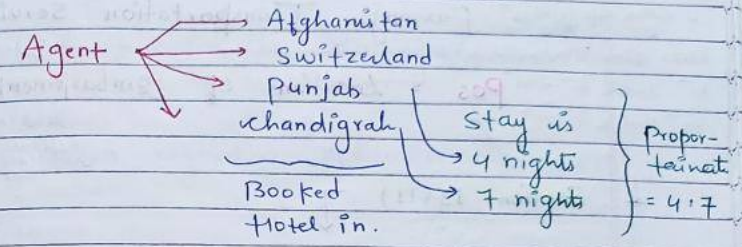 Agent
Afghanistan
Switzerland
Punjab
Chandigrah
Booked
Hotel in.
Stay is
4 nights
7 nights
Propor-
tainati
= 4:7